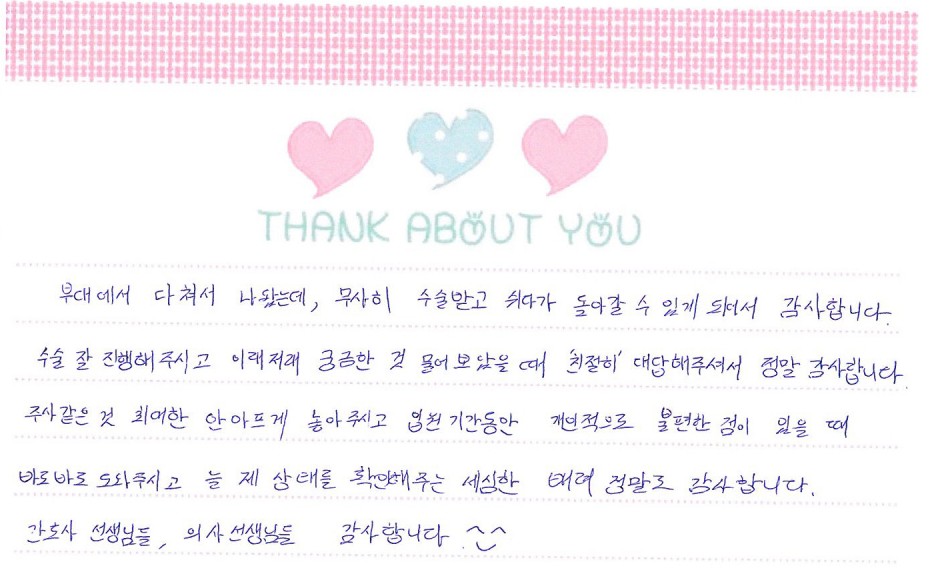 THANK ABOUT YOU
부대에서 다쳐서 나왔는데, 무사히 수술받고 쉬다가 돌아갈 수 있게 되어서 감사합니다.
수술 잘 진행해주시고 이래저래 궁금한 것 물어보았을 때 '친절히' 대답해주셔서 정말 감사합니다.
주사같은 것 최대한 안아프게 놓아주시고 입원기간동안 개인적으로 불편한 점이 있을 때
바로바로 도와주시고 늘 제 상태를 확인해주는 세심한 배려 정말로 감사합니다.
간호사 선생님들, 의사선생님들 감사합니다. ^^